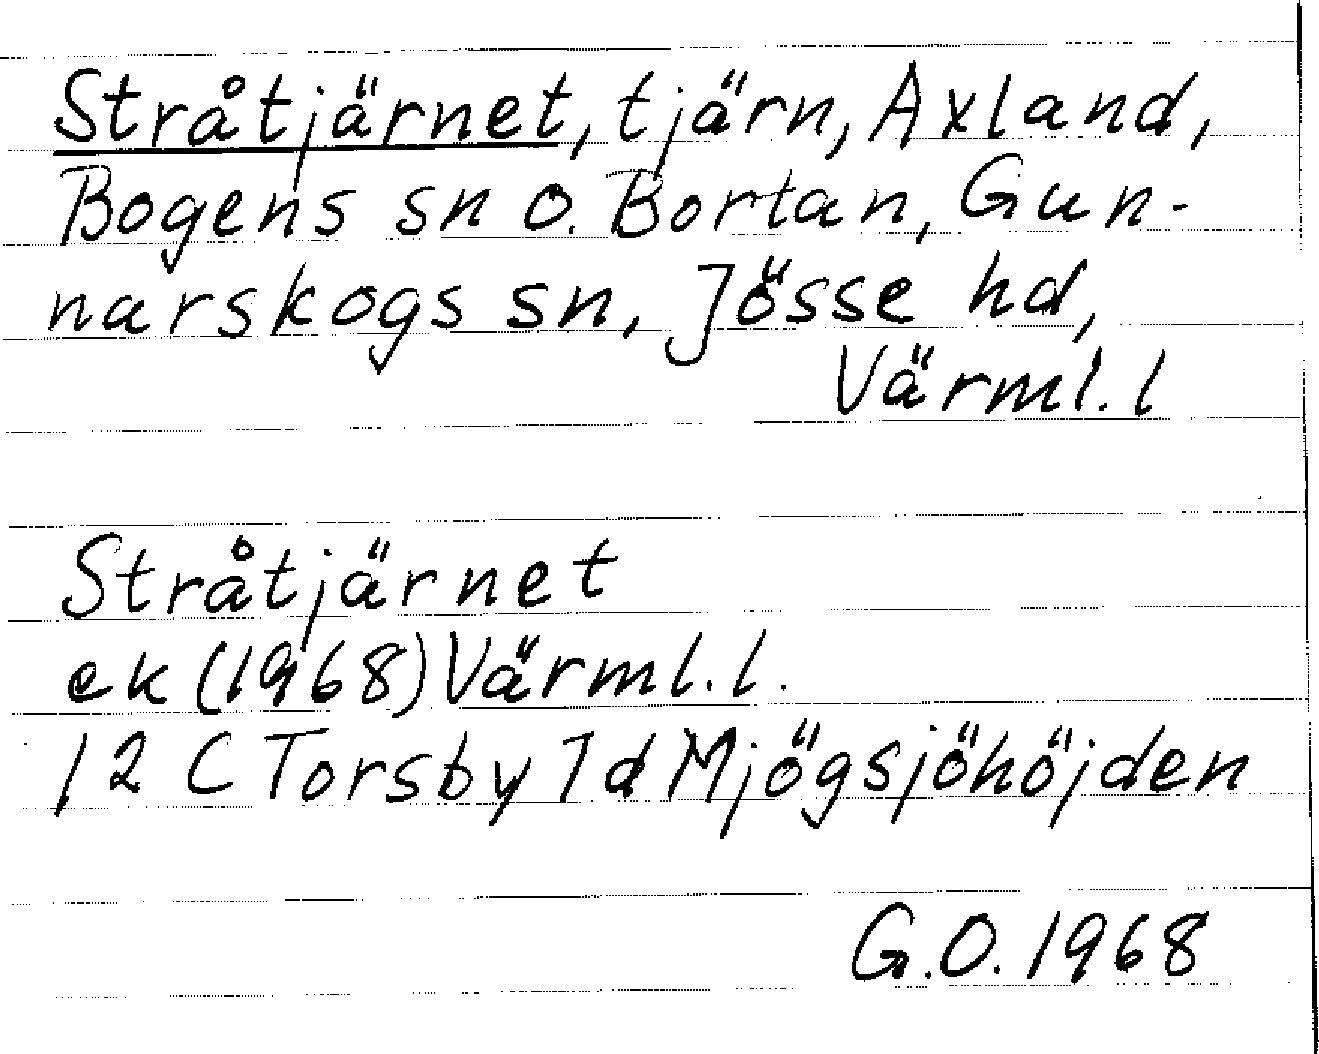 Stråtjärnet, tjärn, Axland,
Bogens sn o. Bortan, Gun-
narskogs sn, Jösse hd,
Värml. l
Stråtjärnet
ek (1968) Värml. l.
12 C Torsby 7d Mjögsjöhöjden
G.O. 1968